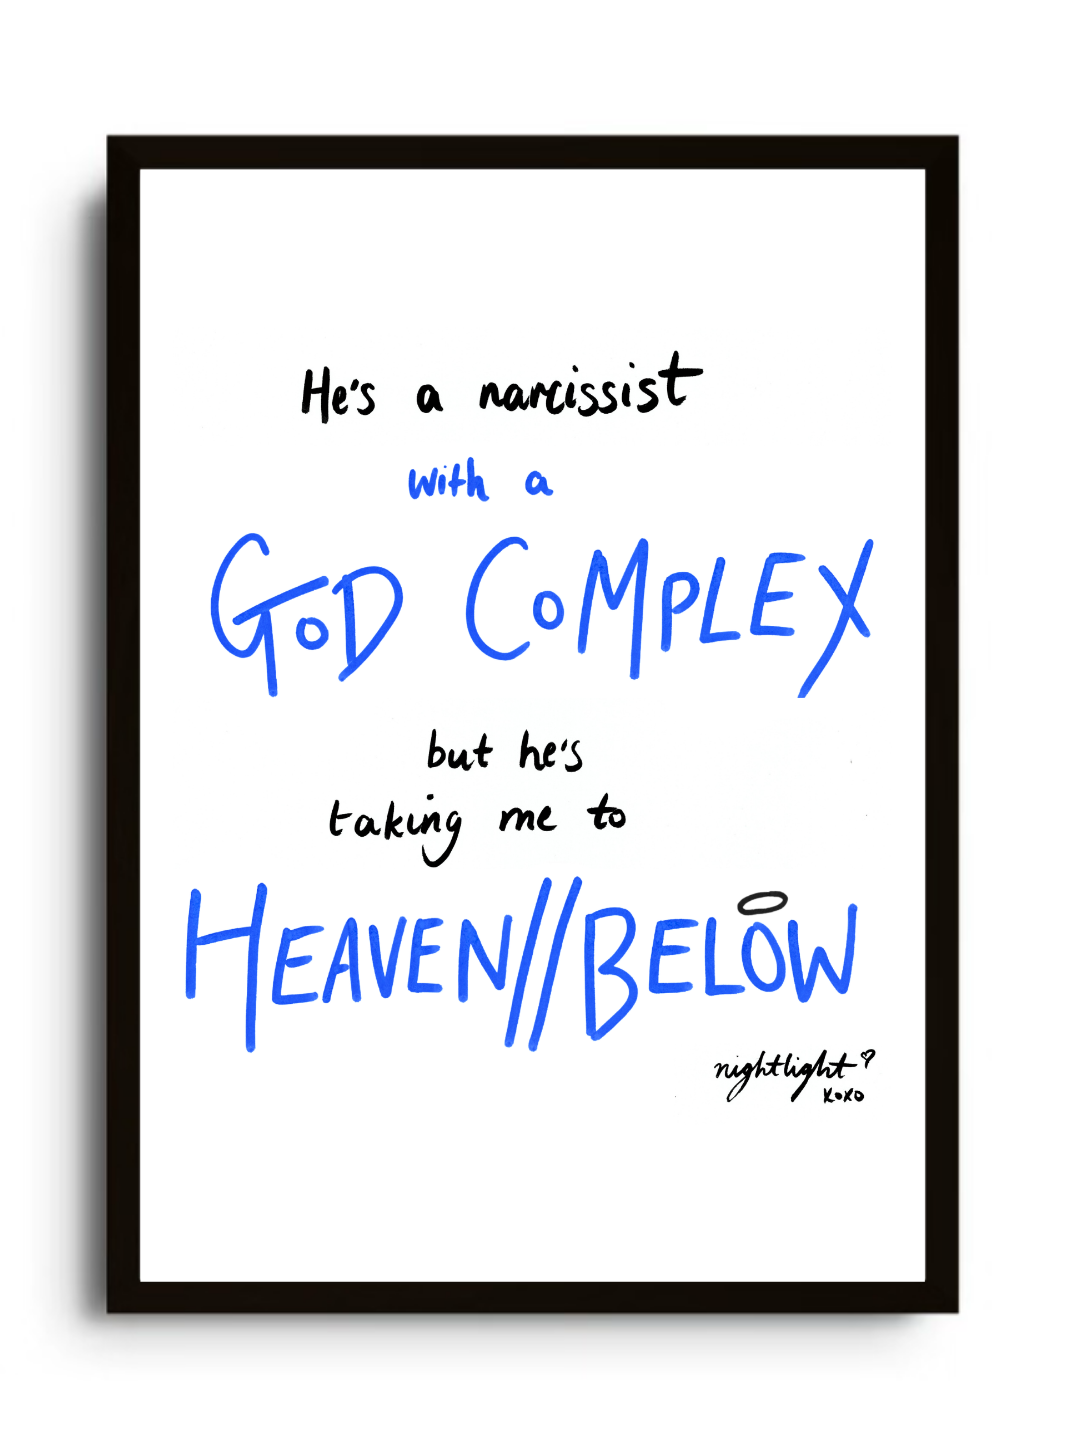 He's a narcissist
with a
GoD CoMPLEX
but he's
taking me to
HEAVEN//BELOW
nightlight
xoxo